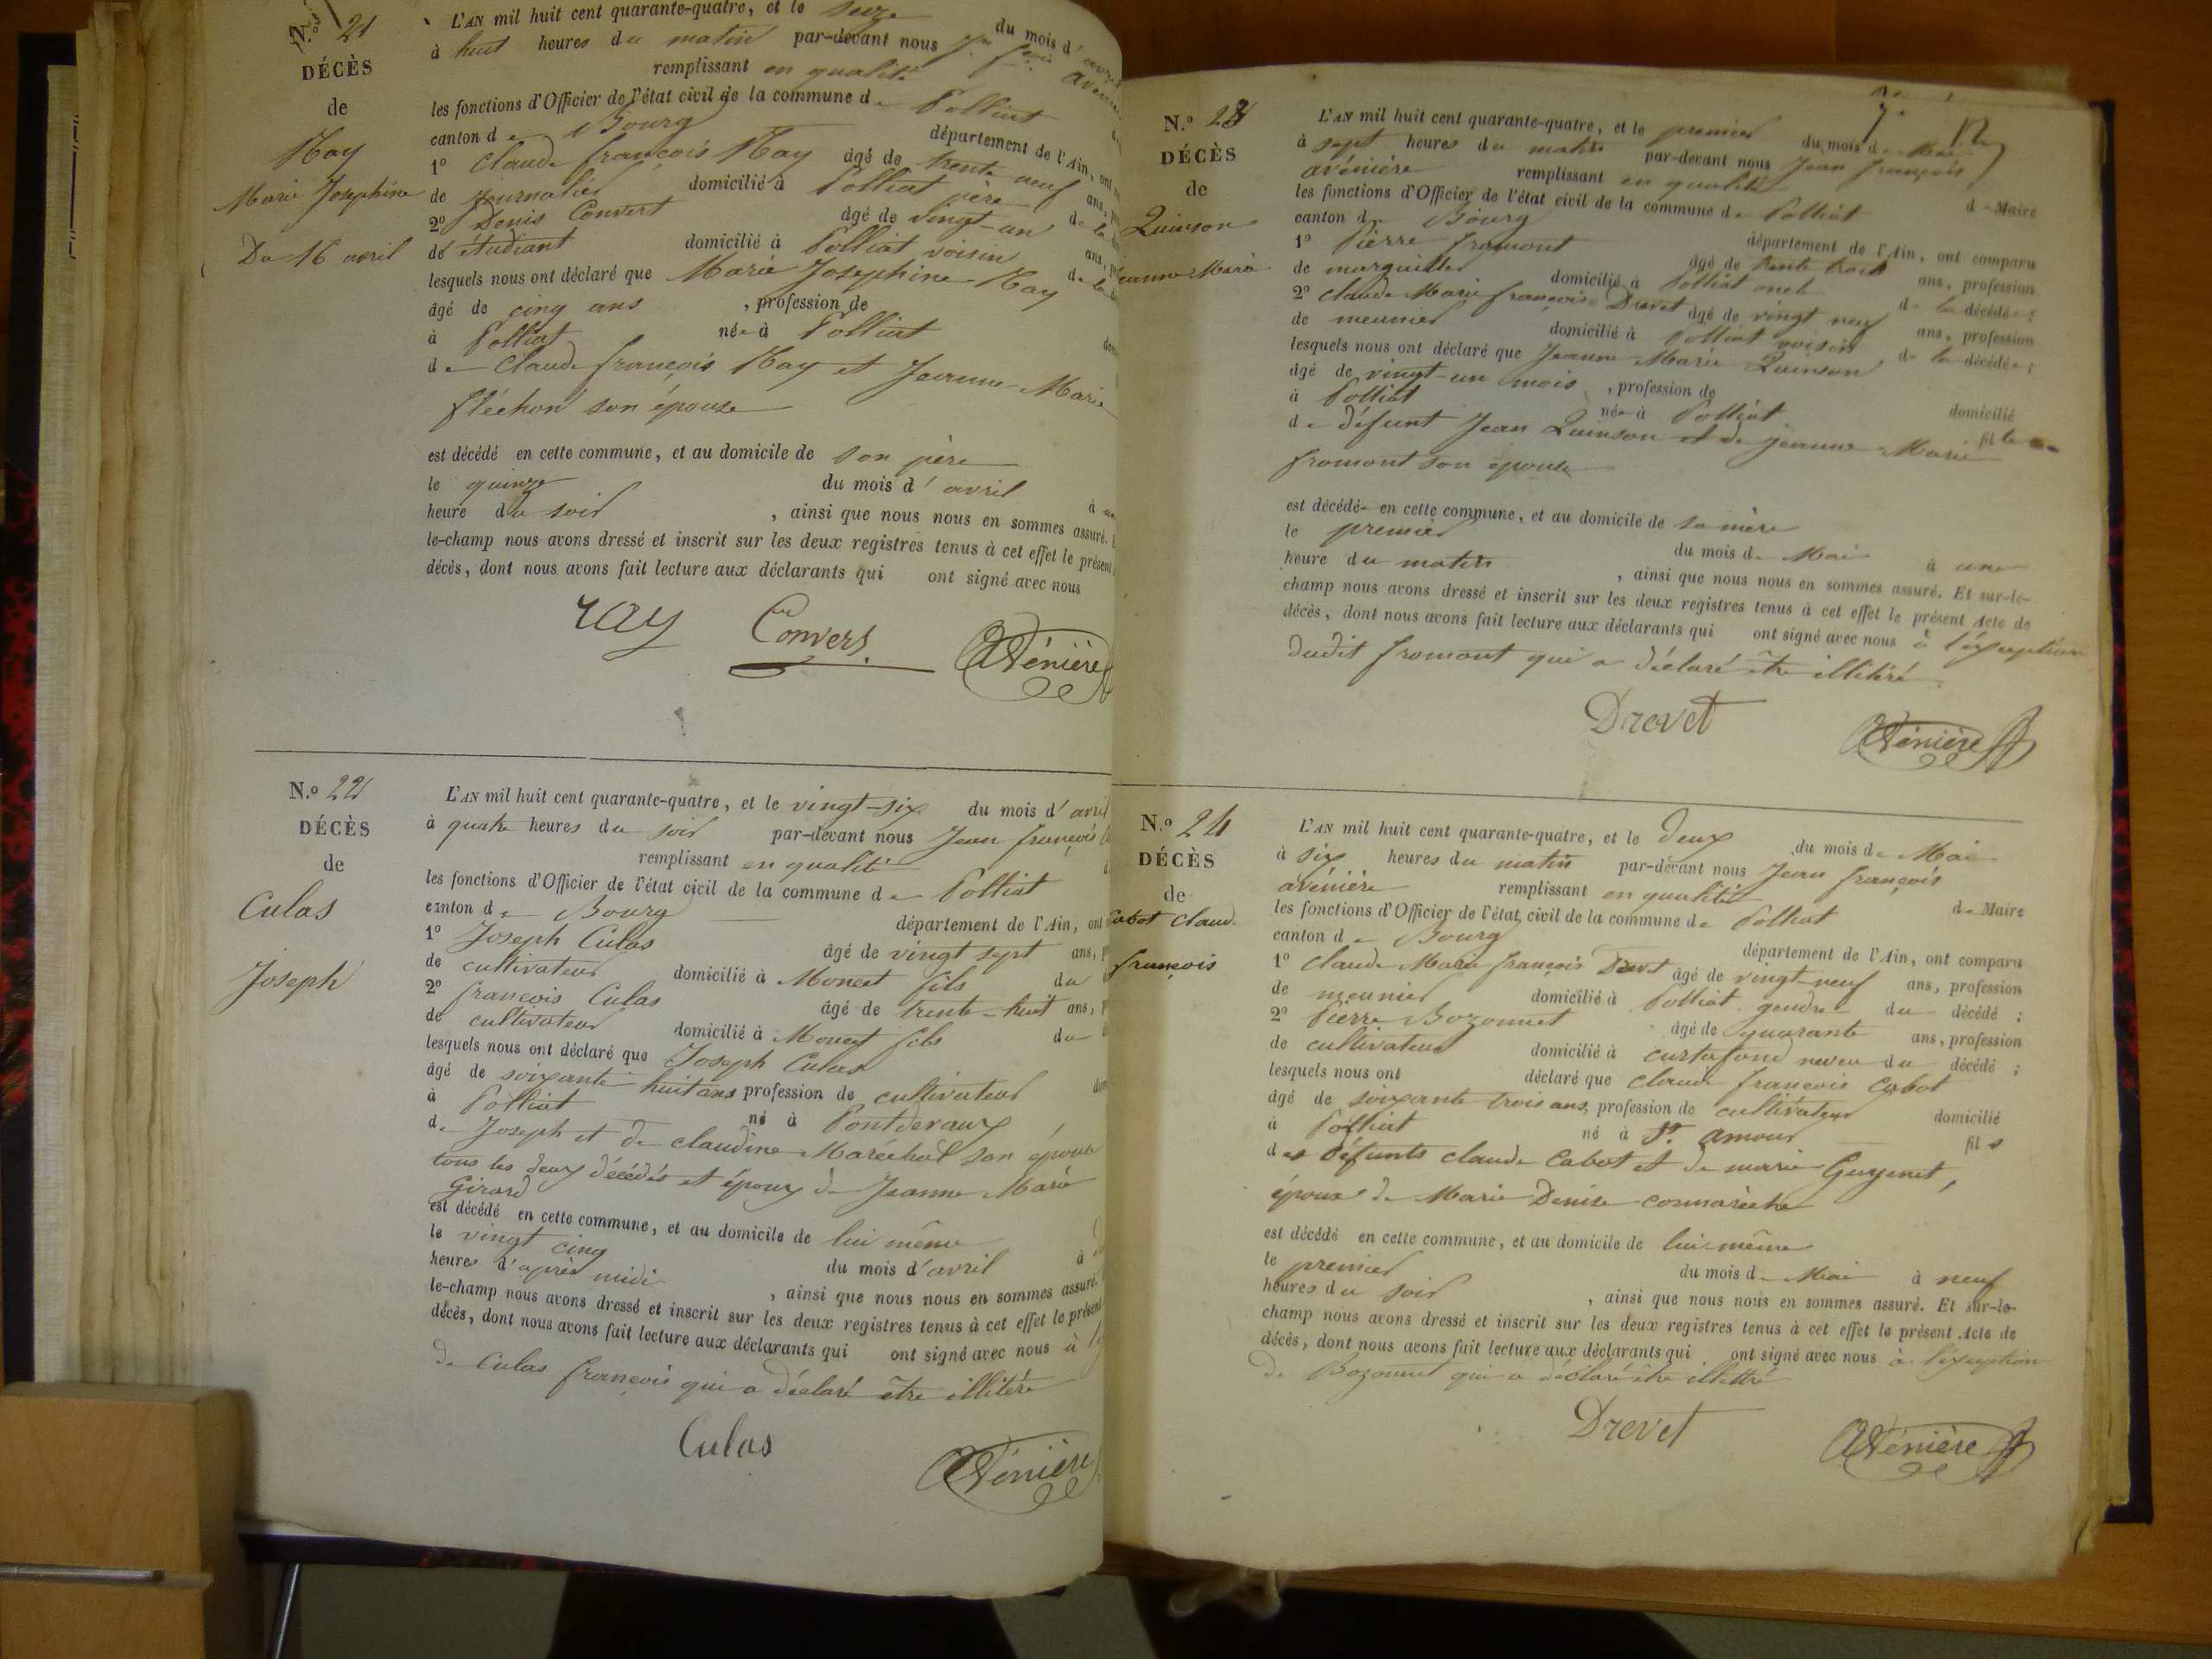 N.o 21
DÉCÈS
de
Ray
Marie Josephine
Du 16 avril
L'AN mil huit cent quarante-quatre, et le seize du mois d'avril
à huit heures du matin par-devant nous
remplissant en qualité
les fonctions d'Officier de l'état civil de la commune de Polliat
canton de Bourg département de l'Ain, ont
1o Claude françois Ray âgé de trente neuf ans,
de journalier domicilié à Polliat père de la
2o Denis Convert âgé de vingt-un ans,
de étudiant domicilié à Polliat voisin de la
lesquels nous ont déclaré que Marie Josephine Ray
âgé de cinq ans , profession de
à Polliat née à Polliat
de Claude françois Ray et Jeanne Marie
fléchon son épouse
est décédé en cette commune, et au domicile de son père
le quinze du mois d'avril à
heure du soir , ainsi que nous nous en sommes assuré.
le-champ nous avons dressé et inscrit sur les deux registres tenus à cet effet le présent
décès, dont nous avons fait lecture aux déclarants qui ont signé avec nous
ray Convers Avénière
N.o 22
DÉCÈS
de
Culas
Joseph
L'AN mil huit cent quarante-quatre, et le vingt-six du mois d'avril
à quatre heures du soir par-devant nous Jean françois
remplissant en qualité
les fonctions d'Officier de l'état civil de la commune de Polliat
canton de Bourg département de l'Ain, ont
1o Joseph Culas âgé de vingt sept ans,
de cultivateur domicilié à Moncet fils du
2o françois Culas âgé de trente-huit ans,
de cultivateur domicilié à Moncet fils du
lesquels nous ont déclaré que Joseph Culas
âgé de soixante huit ans profession de cultivateur
à Polliat né à Pontdevaux
de Joseph et de claudine Maréchal son épouse
tous les deux décédés et époux de Jeanne Marie
Girard
est décédé en cette commune, et au domicile de lui même
le vingt cinq du mois d'avril à
heures d'après midi , ainsi que nous nous en sommes assuré.
le-champ nous avons dressé et inscrit sur les deux registres tenus à cet effet le présent
décès, dont nous avons fait lecture aux déclarants qui ont signé avec nous à
de Culas françois qui a déclaré être illitéré
Culas Avénière
N.o 23
DÉCÈS
de
Quinson
Jeanne Marie
L'AN mil huit cent quarante-quatre, et le premier du mois de Mai
à sept heures du matin par-devant nous Jean françois
avénière remplissant en qualité de Maire
les fonctions d'Officier de l'état civil de la commune de Polliat
canton de Bourg département de l'Ain, ont comparu
1o Pierre fromont âgé de trente trois ans, profession
de marguiller domicilié à Polliat oncle de la décédée;
2o claude Marie françois Drevet âgé de vingt neuf ans, profession
de meunier domicilié à Polliat voisin de la décédée;
lesquels nous ont déclaré que Jeanne Marie Quinson
âgé de vingt-un mois , profession de domicilié
à Polliat née à Polliat fille
de défunt Jean Quinson et de jeanne Marie
fromont son épouse
est décédée en cette commune, et au domicile de sa mère
le premier du mois de Mai à une
heure du matin , ainsi que nous nous en sommes assuré. Et sur-le-
champ nous avons dressé et inscrit sur les deux registres tenus à cet effet le présent Acte de
décès, dont nous avons fait lecture aux déclarants qui ont signé avec nous à l'éxception
dudit fromont qui a déclaré être illitéré
Drevet Avénière
N.o 24
DÉCÈS
de
Cabot Claude
françois
L'AN mil huit cent quarante-quatre, et le deux du mois de Mai
à six heures du matin par-devant nous Jean françois
avénière remplissant en qualité de Maire
les fonctions d'Officier de l'état civil de la commune de Polliat
canton de Bourg département de l'Ain, ont comparu
1o Claude Marie françois Drevet âgé de vingt-neuf ans, profession
de meunier domicilié à Polliat gendre du décédé;
2o Pierre Bozonnet âgé de quarante ans, profession
de cultivateur domicilié à curtafond neveu du décédé;
lesquels nous ont déclaré que claude françois Cabot
âgé de soixante trois ans, profession de cultivateur domicilié
à Polliat né à St. amour fils
des défunts claude Cabot et de marie Guyenet,
époux de Marie Denise cormarèche
est décédé en cette commune, et au domicile de lui-même
le premier du mois de Mai à neuf
heures du soir , ainsi que nous nous en sommes assuré. Et sur-le-
champ nous avons dressé et inscrit sur les deux registres tenus à cet effet le présent Acte de
décès, dont nous avons fait lecture aux déclarants qui ont signé avec nous à l'éxception
de Bozonnet qui a déclaré être illettré
Drevet Avénière